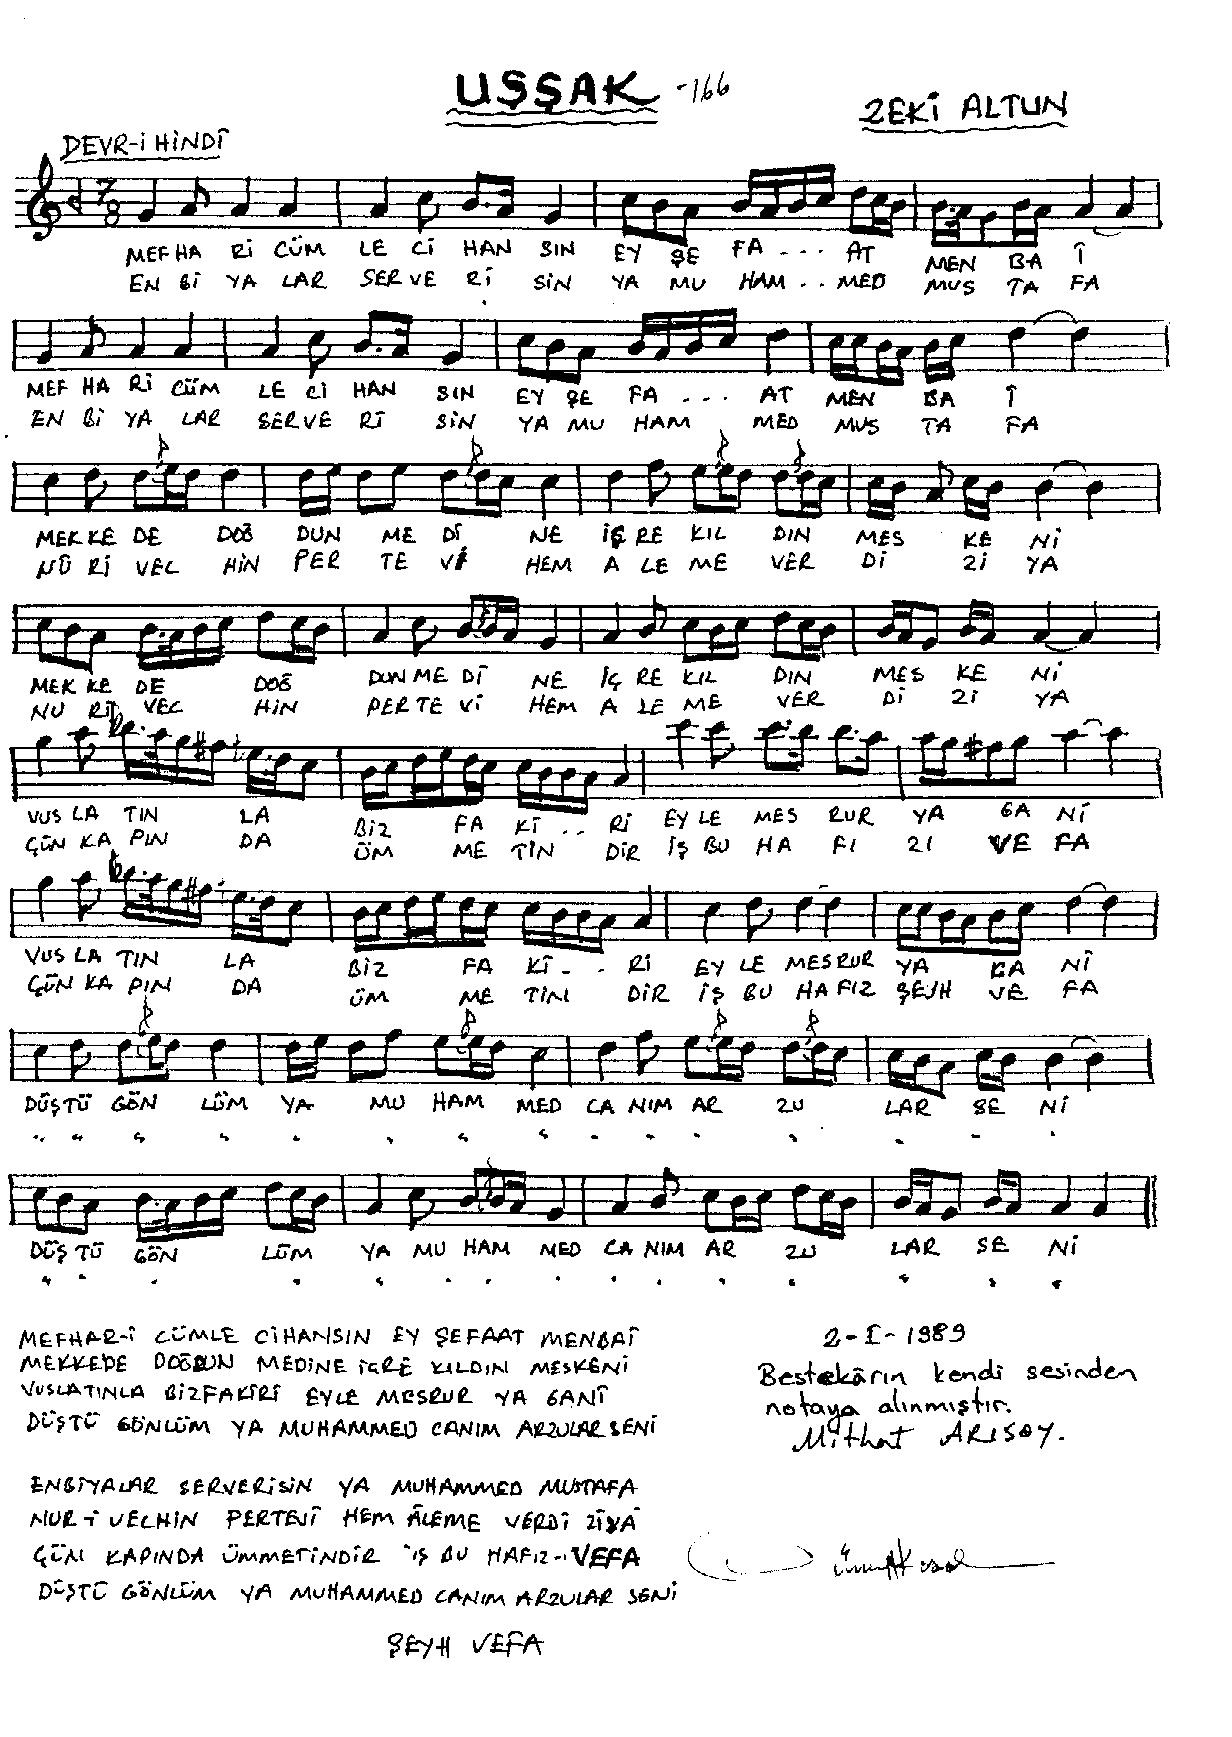 UŞŞAK -166
ZEKİ ALTUN
DEVR-İ HİNDÎ
7
8
MEF HA Rİ CÜM LE Cİ HAN SIN EY ŞE FA . . . . AT MEN BA Î
EN Bİ YA LAR SER VE Rİ SİN YA MU HAM . . MED MUS TA FA
MEF HA Rİ CÜM LE Cİ HAN SIN EY ŞE FA . . . AT MEN BA Î
EN Bİ YA LAR SER VE Rİ SİN YA MU HAM MED MUS TA FA
MEK KE DE DOĞ DUN ME Dİ NE İÇ RE KIL DIN MES KE Nİ
NÛ Rİ VEC HİN PER TE Vİ HEM A LE ME VER Dİ Zİ YA
MEK KE DE DOĞ DUN ME Dİ NE İÇ RE KIL DIN MES KE Nİ
NU Rİ VEC HİN PER TE Vİ HEM A LE ME VER Dİ Zİ YA
VUS LA TIN LA BİZ FA Kİ . . Rİ EY LE MES RUR YA GA Nİ
GÜN KA PIN DA ÜM ME TİN DİR İŞ BU HA FI ZI VE FA
VUS LA TIN LA BİZ FA Kİ - . . Rİ EY LE MESRUR YA GA Nİ
GÜN KA PIN DA ÜM ME TİN DİR İŞ BU HAFIZ ŞEYH VE FA
DÜŞTÜ GÖN LÜM YA MU HAM MED CA NIM AR ZU LAR SE Nİ
" " " " " " " " " " " " " " "
DÜŞ TÜ GÖN LÜM YA MU HAM MED CA NIM AR ZU LAR SE Nİ
" " " " " " " " " " " " " " "
MEFHAR-İ CÜMLE CİHANSIN EY ŞEFAAT MENBAÎ
MEKKEDE DOĞDUN MEDİNE İÇRE KILDIN MESKENİ
VUSLATINLA BİZFAKİRİ EYLE MESRUR YA GANÎ
DÜŞTÜ GÖNLÜM YA MUHAMMED CANIM ARZULAR SENİ
2-I-1989
Bestekârın kendi sesinden
notaya alınmıştır.
Mithat ARISOY.
ENBİYALAR SERVERİSİN YA MUHAMMED MUSTAFA
NUR-İ VECHİN PERTEVİ HEM ÂLEME VERDİ ZİYA
GÜN KAPINDA ÜMMETİNDİR İŞ BU HAFIZ-I VEFA
DÜŞTÜ GÖNLÜM YA MUHAMMED CANIM ARZULAR SENİ
ŞEYH VEFA